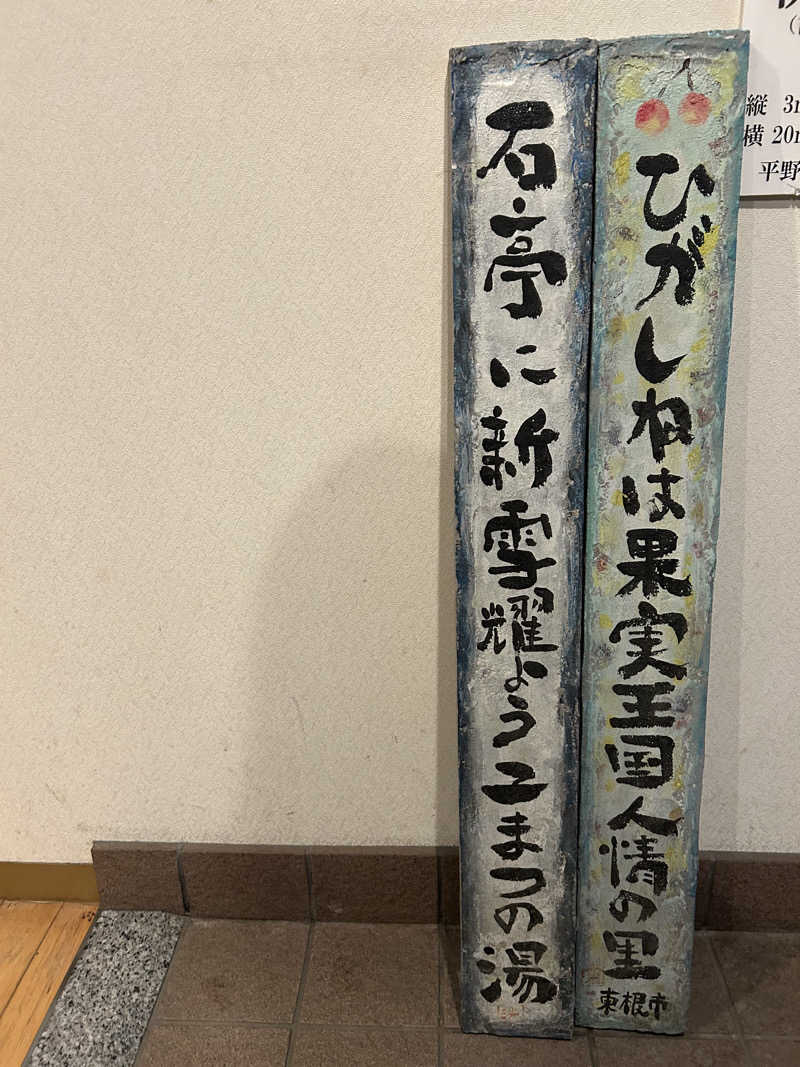 縦 3m
横 20m
平野
ひがしねは果実王国人情の里
東根市
石亭に新雪耀ようこまつの湯